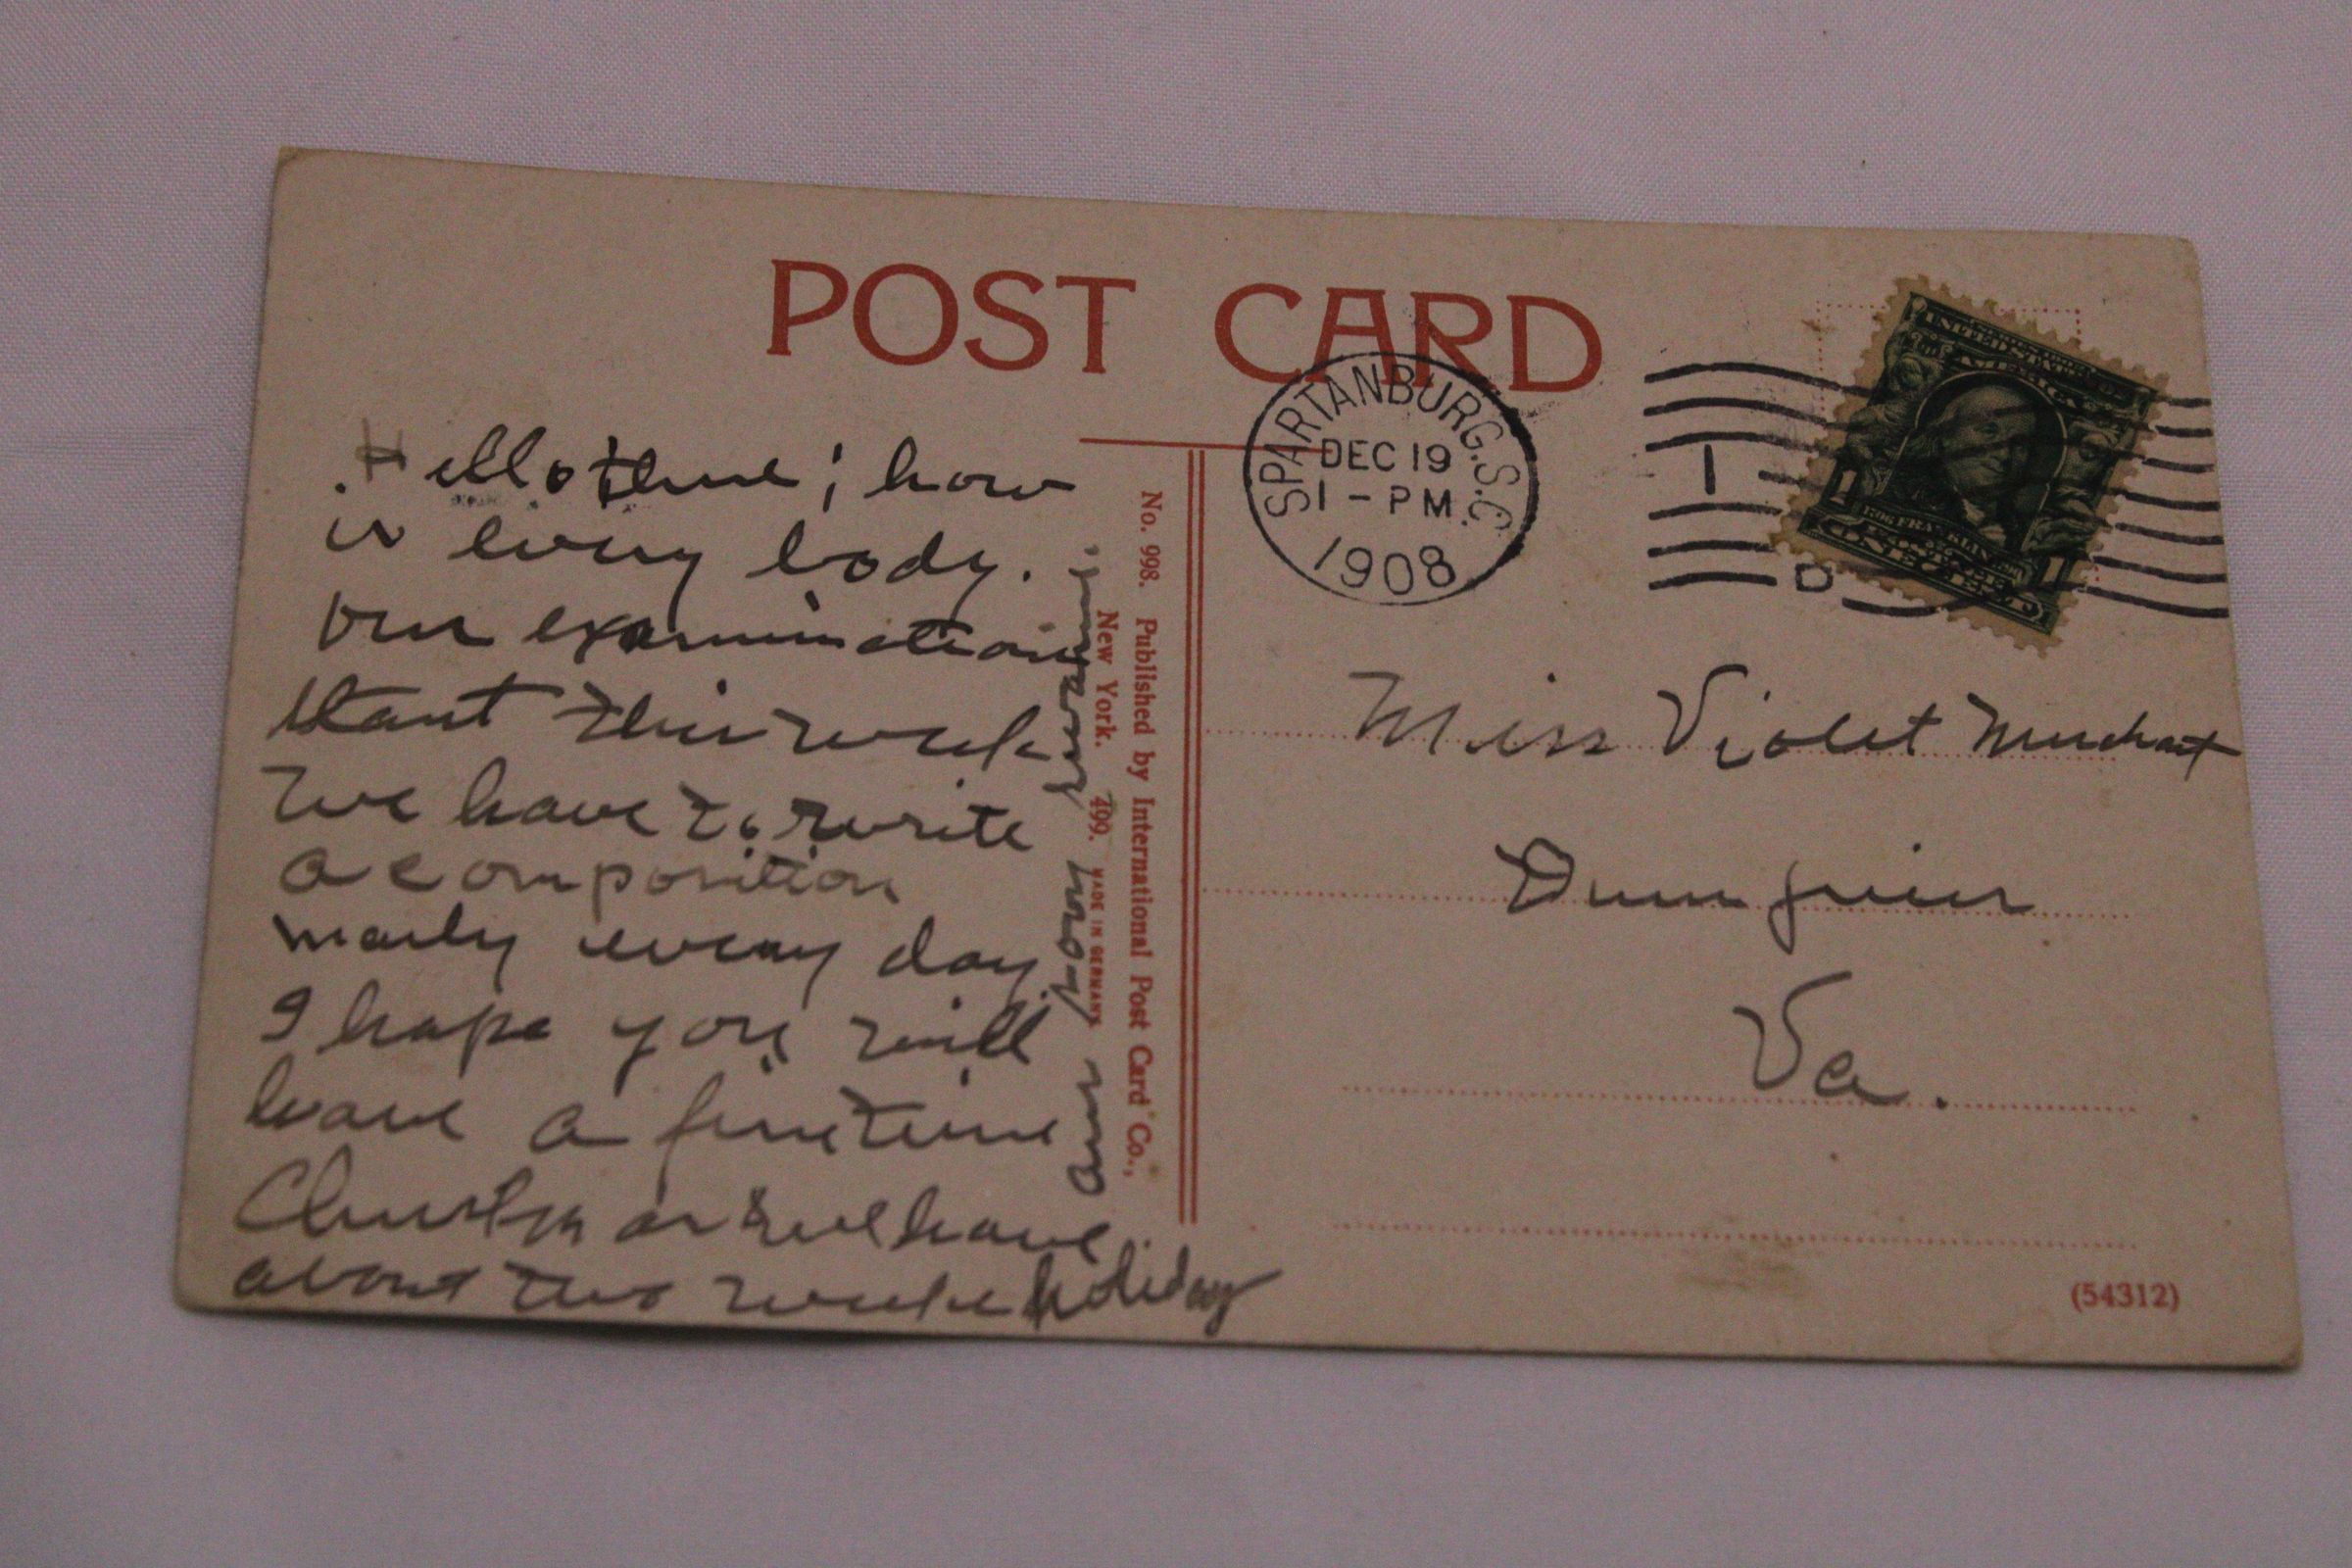 POST CARD
SPARTANBURG. S.C.
DEC 19
1 - PM.
1908
1
D
UNITED STATES OF
AMERICA
1706 FRANKLIN 1790
ONE CENT
1 1
Hello there ; how
is every body.
Our examination
start this week
We have to write
a composition
nearly every day.
I hope you will
have a fine time
Christmas we have
about two weeks holiday
ans soon
No. 998. Published by International Post Card Co.,
New York. 499. MADE IN GERMANY
Miss Violet Merchant
Va.
(54312)